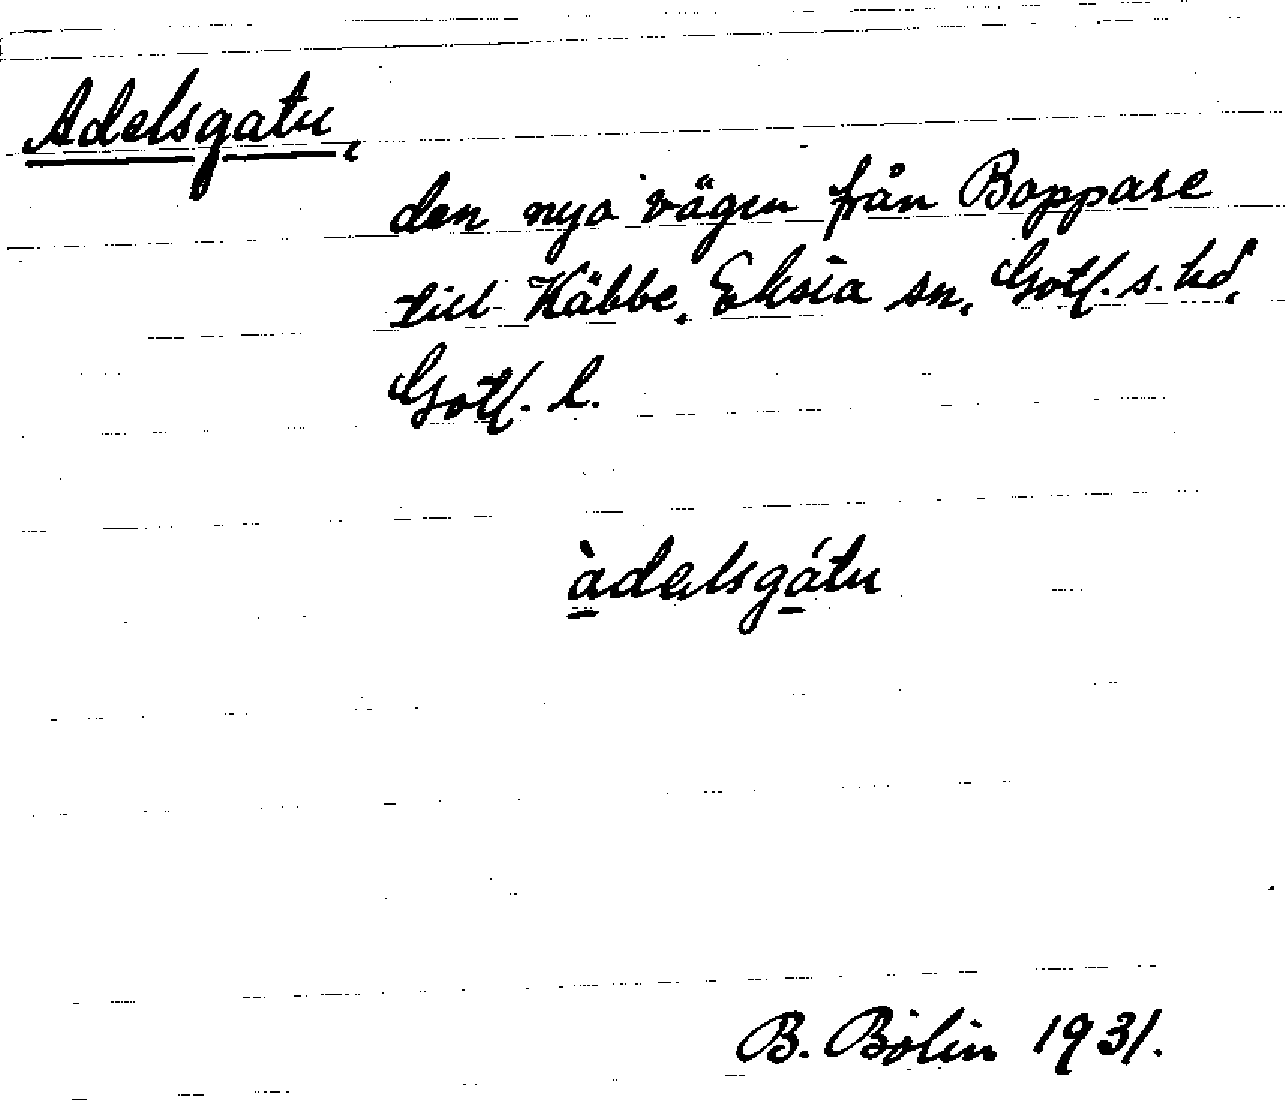 Adelsgatu,
den nya vägen från Boppare
till Käbbe, Eksta sn, Gotl. s. hd,
Gotl. l.
àdelsgátu
B. Bolin 1931.